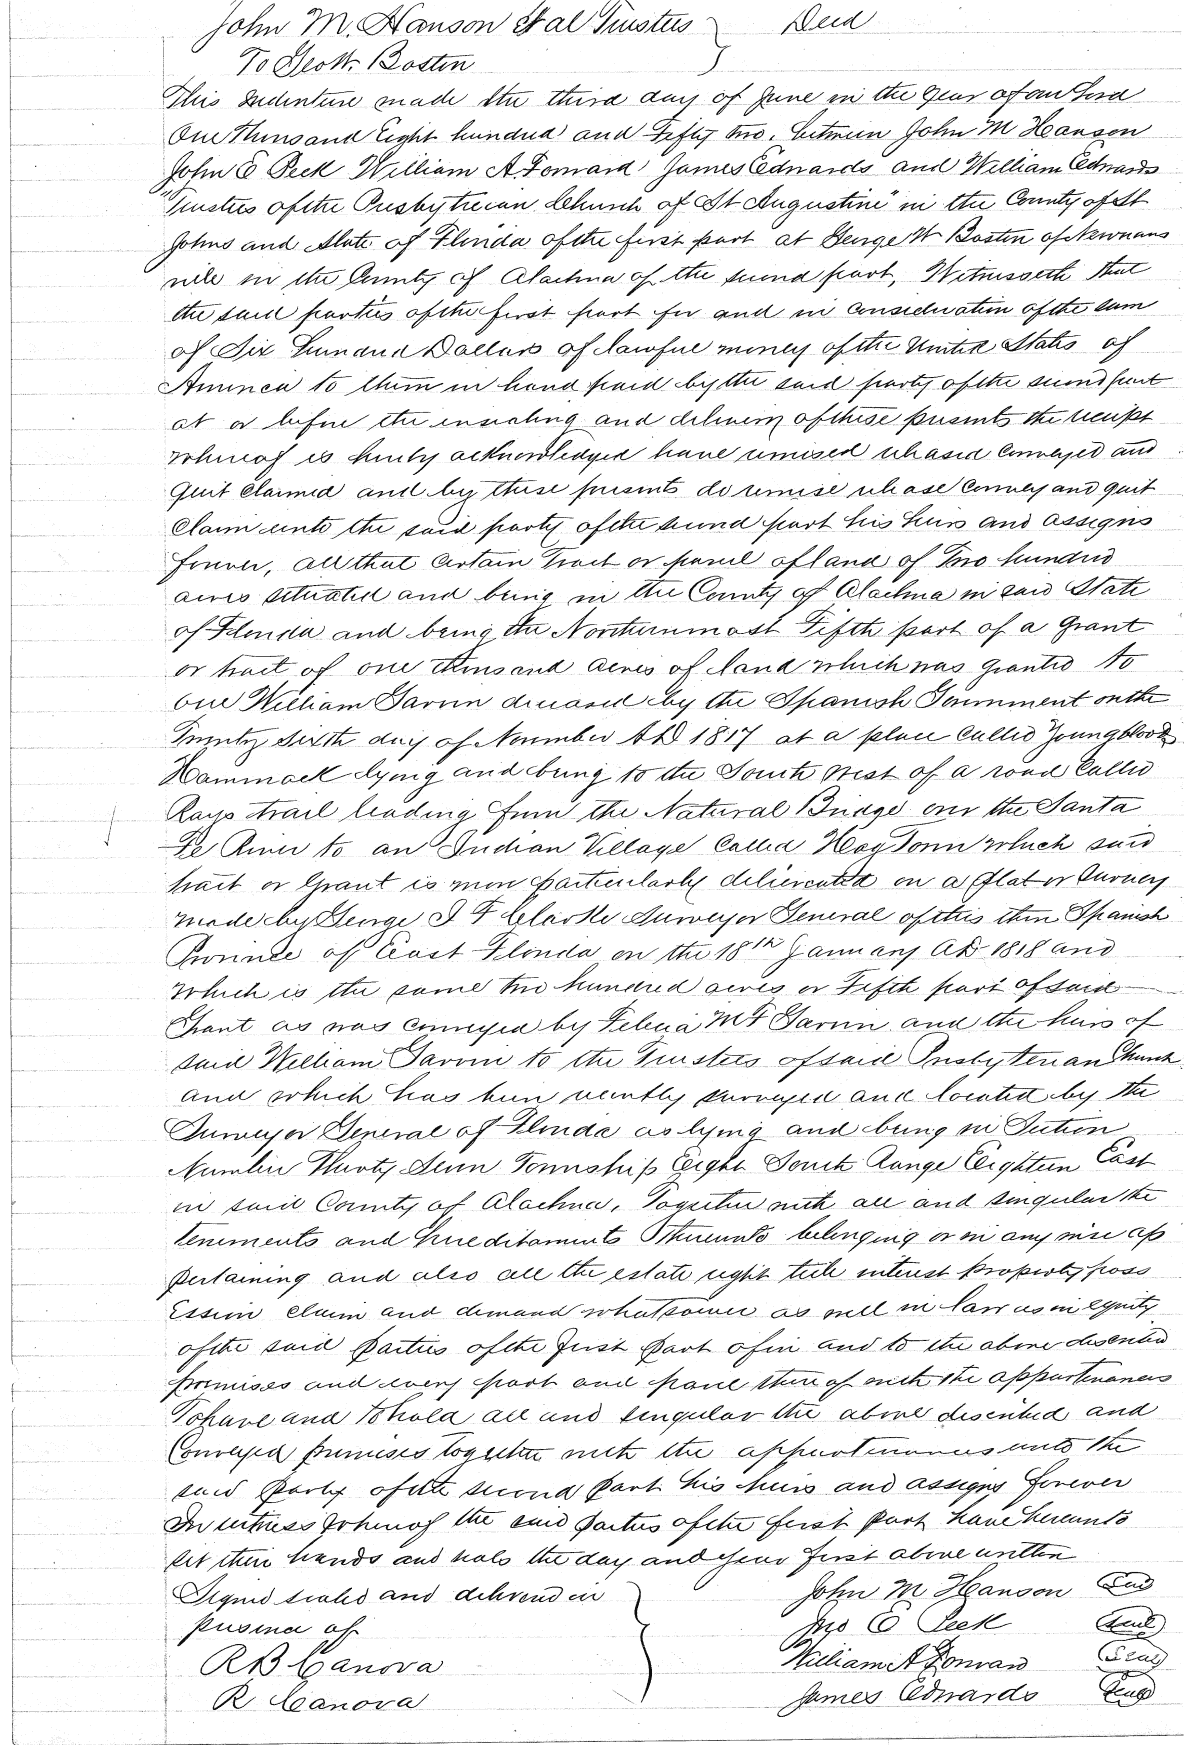 John M. Hanson et al Trustees } Deed
To Geo W. Bostin
This Indenture made the third day of June in the year of our Lord
One Thousand Eight hundred and Fifty two. between John M Hanson
John E Peck William A. Forward James Edwards and William Edwards
"Trustees of the Presbyterian Church of St Augustine" in the County of St
Johns and State of Florida of the first part at George W Bostin of Newnans
ville in the County of Alachua of the second part, Witnesseth that
the said parties of the first part for and in consideration of the sum
of Six hundred Dollars of lawful money of the United States of
America to them in hand paid by the said party of the second part
at or before the ensealing and delivery of these presents the receipt
whereof is hereby acknowledged have remised released Conveyed and
Quit Claimed and by these presents do remise release Convey and quit
Claim unto the said party of the second part his heirs and assigns
forever, all that certain Tract or parcel of land of Two hundred
acres situated and being in the County of Alachua in said State
of Florida and being the Northernmost Fifth part of a Grant
or tract of one thousand acres of land which was granted to
one William Garvin deceased by the Spanish Government on the
Twenty Sixth day of November AD 1817 at a place Called Youngbloods
Hammock lying and being to the South West of a road Called
Rays trail leading from the Natural Bridge over the Santa
Fe River to an Indian Village Called Hog Town which said
tract or Grant is more particularly delienated on a plat or Survey
made by George J F Clarke Surveyor General of this then Spanish
Province of East Florida on the 18th January AD 1818 and
which is the same two hundred acres or Fifth part of said
Grant as was Conveyed by Felicia M F Garvin and the heirs of
said William Garvin to the Trustees of said Presbyterian Church
and which has been recently surveyed and located by the
Surveyor General of Florida as lying and being in Section
Number Thirty Seven Township Eight South Range Eighteen East
in said County of Alachua, Together with all and singular the
tenements and hereditaments Thereunto belonging or in any wise ap
pertaining and also all the estate right title interest property poss
ession claim and demand whatsoever as well in law as in equity
of the said Parties of the first Part of in and to the above described
premises and every part and parcel thereof with the appurtenances
To have and to hold all and singular the above described and
Conveyed premises together with the appurtenances unto the
said Party of the second Part his heirs and assigns forever
In witness whereof the said parties of the first Part have hereunto
set their hands and seals the day and year first above written
Signed sealed and delivered in } John M Hanson Seal
presence of Jno E Peck Seal
R B Canova William A Forward Seal
R Canova James Edwards Seal